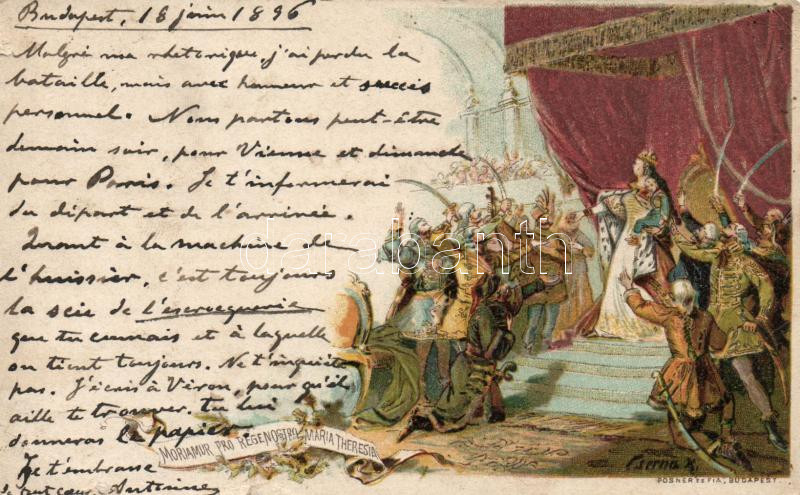 Budapest, 18 juin 1896
Malgré ma rhetorique, j'ai perdu la
bataille, mais avec honneur et succès
personnel. Nous partons peut-être
demain soir, pour Vienne et dimanche
pour Parris. Je t'informerai
du départ et de l'arrivée.
Quant à la machine de
l'huissier, c'est toujours
la scie de l'escrocquerie
que tu connais et à laquelle
on tient toujours. Ne t'inquiète
pas. J'écris à Véron, pour qu'il
aille te trouver. tu lui
donneras le papier.
Je t'embrasse
de tout cœur, Antoine
MORIAMUR PRO REGE NOSTRO MARIA THERESIA
Cserna K.
POSNER ÉS FIA, BUDAPEST.
darabanth